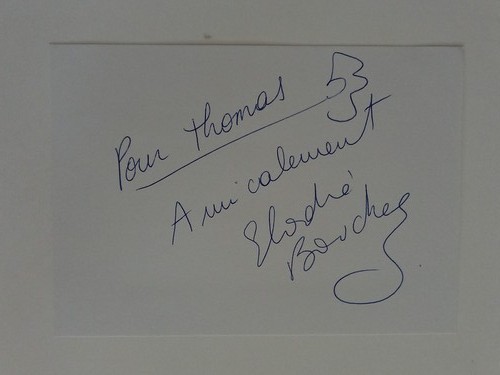 Pour Thomas
Amicalement
Elodie
Bouchez